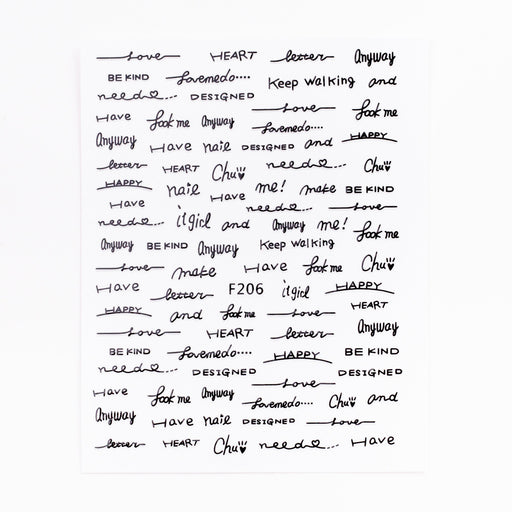 Love HEART letter Anyway
BE KIND Lovemedo.... Keep Walking and
need... DESIGNED
Love
Have look me Anyway Lovemedo.... look me
Anyway Have nail DESIGNED and HAPPY
letter HEART Chu need... Chu
HAPPY nail Have me! make BE KIND
Have need... Love
need... itgirl and Anyway me! look me
Anyway BE KIND Anyway Keep Walking
Love make Have look me Chu
Have letter F206 itgirl HAPPY
HAPPY and look me Love HEART
Love HEART letter Anyway
BE KIND Lovemedo.... HAPPY BE KIND
need... DESIGNED Love DESIGNED
Have look me Anyway Lovemedo.... Chu and
Anyway Have nail DESIGNED Love
letter HEART Chu need... Have